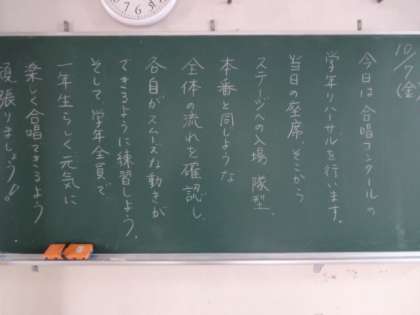 10/7(金)
今日は合唱コンクールの
学年リハーサルを行います。
当日の座席、そこから
ステージへの入場、隊型、
本番と同じような
全体の流れを確認し、
各自がスムーズな動きが
できるように練習しよう。
そして学年全員で
一年生らしく元気に
楽しく合唱できるよう
頑張りましょう!!